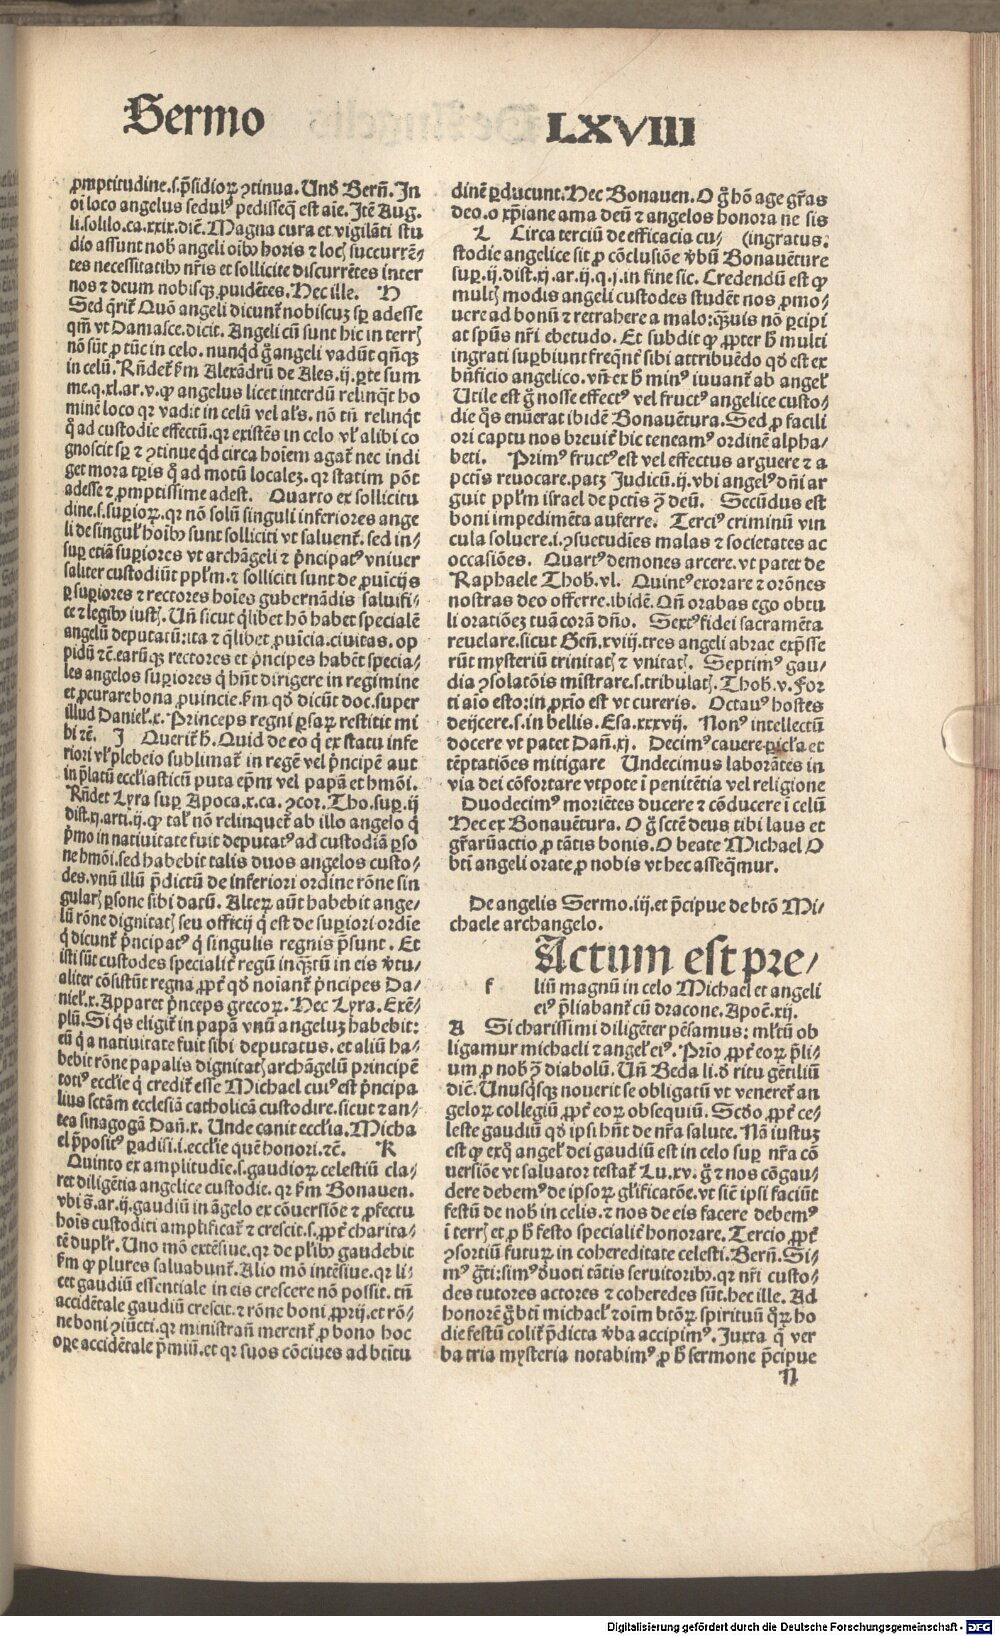 Sermo LXVIII
ꝓmptitudine.s.p̄sidioꝝ ↄtinua. Unð Berñ. In
oi loco angelus sedulꝰ pedisseq̄ est aīe. Itē Aug.
li.solilo.ca.xxix.diē. Magna cura et vigilāti stu
dio assunt nob̄ angeli oībꝰ horis ⁊ locꝭ succurrē⸗
tes necessitatibꝰ nr̄is et sollicite discurrētes inter
nos ⁊ deum nobisqꝫ ꝓuidētes. Hec ille. H
Sed q̄rit̄ Quō angeli dicunt̄ nobiscuꝫ sꝑ adesse
qm̄ vt Damasce.dicit. Angeli cū sunt hic in terrꝭ
nō sūt ꝓ tūc in celo. nunq̄d g̊ angeli vadūt qn̄qꝫ
in celū. Rn̄det̄ ẜm Alexādrū de Ales.ij.ꝑte sum
me.q.xl.ar.v.ꝙ angelus licet interdū relinq̄t ho
minē loco qꝛ vadit in celū vel al̄s. nō tn̄ relinq̄t
q̄ ad custodie effectū.qꝛ existēs in celo vl̄ alibi co
gnoscit sꝑ ⁊ ↄtinue qd̄ circa hoiem agat̄ nec indi
get mora tꝑis q̄ ad motū localeꝫ.qꝛ statim pōt
adesse ⁊ ꝓmptissime adest. Quarto ex sollicitu
dine.s.suꝑioꝝ.qꝛ nō solū singuli inferiores ange
li de singul̄ hoībꝰ sunt solliciti vt saluent̄.sed in⸗
suꝑ etiā suꝑiores vt archāgeli ⁊ p̄ncipatꝰ vniuer
saliter custodiūt ppl̄m.⁊ solliciti sunt de ꝓuīcijs
ꝑ suꝑiores ⁊ rectores hoīes gubernādis saluifi⸗
ce ⁊ legibꝰ iustꝭ. Un̄ sicut q̄libet hō habet specialē
angelū deputatū:ita ⁊ q̄libet ꝓuīcia.ciuitas.op
pidū ⁊c̄.earūqꝫ rectores et p̄ncipes habēt specia⸗
les angelos suꝑiores q̇ hn̄t dirigere in regimine
et ꝓcurare bona ꝓuincie.ẜm qð dicūt doc.super
illud Daniel̄.x. Princeps regni ꝑsaꝝ restitit mi
hi ⁊c̄. I Querit̄ h̄. Quid de eo q̇ ex statu infe
riori vl̄ plebeio sublimat̄ in regē vel p̄ncipē aut
in p̄latū eccl̄iasticū puta ep̄m vel papā et hmōi.
Rn̄det Lyra suꝑ Apoca.x.ca.ↄcor.Tho.suꝑ.ij
dist.xj.arti.ij.ꝙ tal̄ nō relinquet̄ ab illo angelo q̇
p̄mo in natiuitate fuit deputatꝰ ad custodiā ꝑso
ne hmōi.sed habebit talis duos angelos custo⸗
des.vnū illū p̄dictū de inferiori ordine rōne sin
gularꝭ ꝑsone sibi datū. Alteꝝ aūt habebit ange⸗
lū rōne dignitatꝭ seu officij q̇ est de suꝑiori ordīe
q̇ dicunt̄ p̄ncipatꝰ q̇ singulis regnis p̄sunt. Et
isti sūt custodes specialit̄ regū inqꝫtū in eis v̄tu⸗
aliter cōsistūt regna ꝓpt̄ qð noiant̄ p̄ncipes Da⸗
niel̄.x. Apparet p̄nceps grecoꝝ. Hec Lyra. Exē⸗
plū. Si q̇s eligit̄ in papā vnū angeluꝫ habebit:
eū q̇ a natiuitate fuit sibi deputatus.et aliū ha⸗
bebit rōne papalis dignitatꝭ archāgelū principē
totiꝰ eccl̄ie q̇ credit̄ esse Michael cuiꝰ est p̄ncipa
lius sctā̄m ecclesiā catholicā custodire.sicut ⁊ an⸗
tea sinagogā Dañ.x. Unde canit eccl̄ia. Micha
el p̄positꝰ ꝑadisi.i.eccl̄ie quē honori.⁊c̄. K
Quinto ex amplitudīe.s.gaudioꝝ celestiū cla⸗
ret diligētia angelice custodie.qꝛ ẜm Bonauen.
vbi s̄.ar.ij.gaudiū in āgelo ex cōuersiōe ⁊ ꝓfectu
hoīs custoditi amplificat̄ ⁊ crescit.s.ꝓpt̄ charita⸗
tē dupl̄r. Uno mō extēsiue.qꝛ de pl̄ibꝰ gaudebit
ẜm ꝙ plures saluabunt̄. Alio mō intēsiue.qꝛ li⸗
cet gaudiū essentiale in eis crescere nō possit.tn̄
accidētale gaudiū crescit.⁊ rōne boni ꝓprij.et rō⸗
ne boni ↄiūcti.qꝛ ministrañ merent̄ ꝓ bono hoc
oꝑe accidētale p̄miū.et qꝛ suos cōciues ad btītu
dinē ꝑducunt. Hec Bonauen. O g̊ hō age gr̄as
deo.o xp̄iane ama deū ⁊ angelos honora ne sis
L Circa terciū de efficacia cu⸗ (ingratus:
stodie angelice sit ꝓ cōclusiōe v̄bū Bonauēture
suꝑ.ij.dist.xj.ar.ij.q.j.in fine sic. Credendū est ꝙ
multꝭ modis angeli custodes studēt nos ꝓmo⸗
uere ad bonū ⁊ retrahere a malo:qꝫuis nō ꝑcipi
at spūs nr̄i ebetudo. Et subdit ꝙ ꝓpter h̄ multi
ingrati suꝑbiunt freq̄nt̄ sibi attribuēdo qð est ex
bn̄ficio angelico.vn̄ ex h̄ minꝰ iuuant̄ ab angel̄
Utile est g̊ nosse effectꝰ vel fructꝰ angelice custo⸗
die q̇s enūerat ibidē Bonauētura. Sed ꝓ facili
ori captu nos breuit̄ hic teneamꝰ ordinē alpha⸗
beti. Primꝰ fructꝰ est vel effectus arguere ⁊ a
pctīs reuocare.patꝫ Judicū.ij.vbi angelꝰ dn̄i ar
guit ppl̄m israel de pctīs ↄ̄ deū. Secūdus est
boni impedimēta auferre. Terciꝰ criminū vin
cula soluere.i.ↄsuetudīes malas ⁊ societates ac
occasiōes. Quartꝰ demones arcere.vt patet de
Raphaele Thob̄.vl. Quintꝰ exorare ⁊ orōnes
nostras deo offerre.ibidē. Qn̄ orabas ego obtu
li oratiōeꝫ tuā corā dn̄o. Sextꝰ fidei sacramēta
reuelare.sicut Geñ.xviij.tres angeli abrae exp̄sse
rūt mysteriū trinitatꝭ ⁊ vnitatꝭ. Septimꝰ gau⸗
dia ↄsolatōis mīstrare.s.tribulatꝭ. Thob̄.v. For
ti aīo esto:in ꝓxīo est vt cureris. Octauꝰ hostes
deijcere.s.in bellis. Esa.xxxvij. Nonꝰ intellectū
docere vt patet Dañ.xj. Decimꝰ cauere picl̄a et
tēptatiōes mitigare Undecimus laborātes in
via dei cōfortare vtpote ī penitētia vel religione
Duodecimꝰ moriētes ducere ⁊ cōducere ī celū
Hec ex Bonauētura. O g̊ sctē deus tibi laus et
gr̄aꝝactio ꝓ tātis bonis. O beate Michael O
btī angeli orate ꝓ nobis vt hec asseq̄mur.
De angelis Sermo.iij.et p̄cipue de btō Mi⸗
chaele archangelo.
Actum est pre⸗
f liū magnū in celo Michael et angeli
eiꝰ p̄liabant̄ cū dracone. Apoc̄.xij.
A Si charissimi diligēter pēsamus:ml̄tū ob
ligamur michaeli ⁊ angel̄ eiꝰ. Prīo ꝓpt̄ eoꝝ p̄li⸗
um ꝓ nob̄ ↄ̄ diabolū. Un̄ Beda li.ð ritu gētiliū
dic̄. Unusq̇sqꝫ nouerit se obligatū vt veneret̄ an
geloꝝ collegiū ꝓpt̄ eoꝝ obsequiū. Scðo ꝓpt̄ ce⸗
leste gaudiū qð ipsi hn̄t de nr̄a salute. Nā iustuꝫ
est ꝙ exq̇ angel̄ dei gaudiū est in celo suꝑ nr̄a cō
uersiōe vt saluator testat̄ Lu.xv. g̊ ⁊ nos cōgau⸗
dere debemꝰ de ipsoꝝ gl̄ificatōe.vt sic̄ ipsi faciūt
festū de nob̄ in celis.⁊ nos de eis facere debemꝰ
ī terrꝭ et ꝓ h̄ festo specialit̄ honorare. Tercio ꝓpt̄
ↄsortiū futuꝝ in cohereditate celesti. Berñ. Si⸗
mꝰ g̊ti:simꝰ ðuoti tātis seruitoribꝰ.qꝛ nr̄i custo⸗
des tutores actores ⁊ coheredes sūt.hec ille. Ad
honorē g̊ btī michael̄ ⁊ oīm btōꝝ spirituū q̄ꝝ ho
die festū colit̄ p̄dicta v̄ba accipimꝰ. Juxta q̄ ver
ba tria mysteria notabimꝰ ꝓ h̄ sermone p̄cipue
N
Digitalisierung gefördert durch die Deutsche Forschungsgemeinschaft - DFG